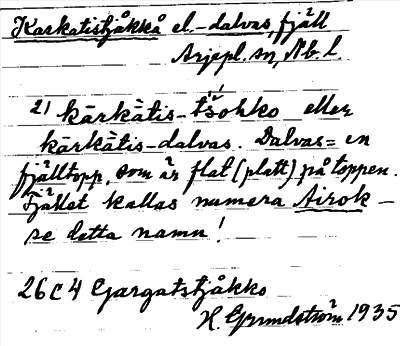 Karkatistjåkkå el. -dalvas, fjäll
Arjepl. sn, Nb. l.
21 kärkàtis-tšohko eller
kärkàtis-dalvas. Dalvas = en
fjälltopp, som är flat (platt) på toppen.
Fjället kallas numera Airok –
se detta namn!
26 C 4 Gargatstjåkko
H. Grundström 1935